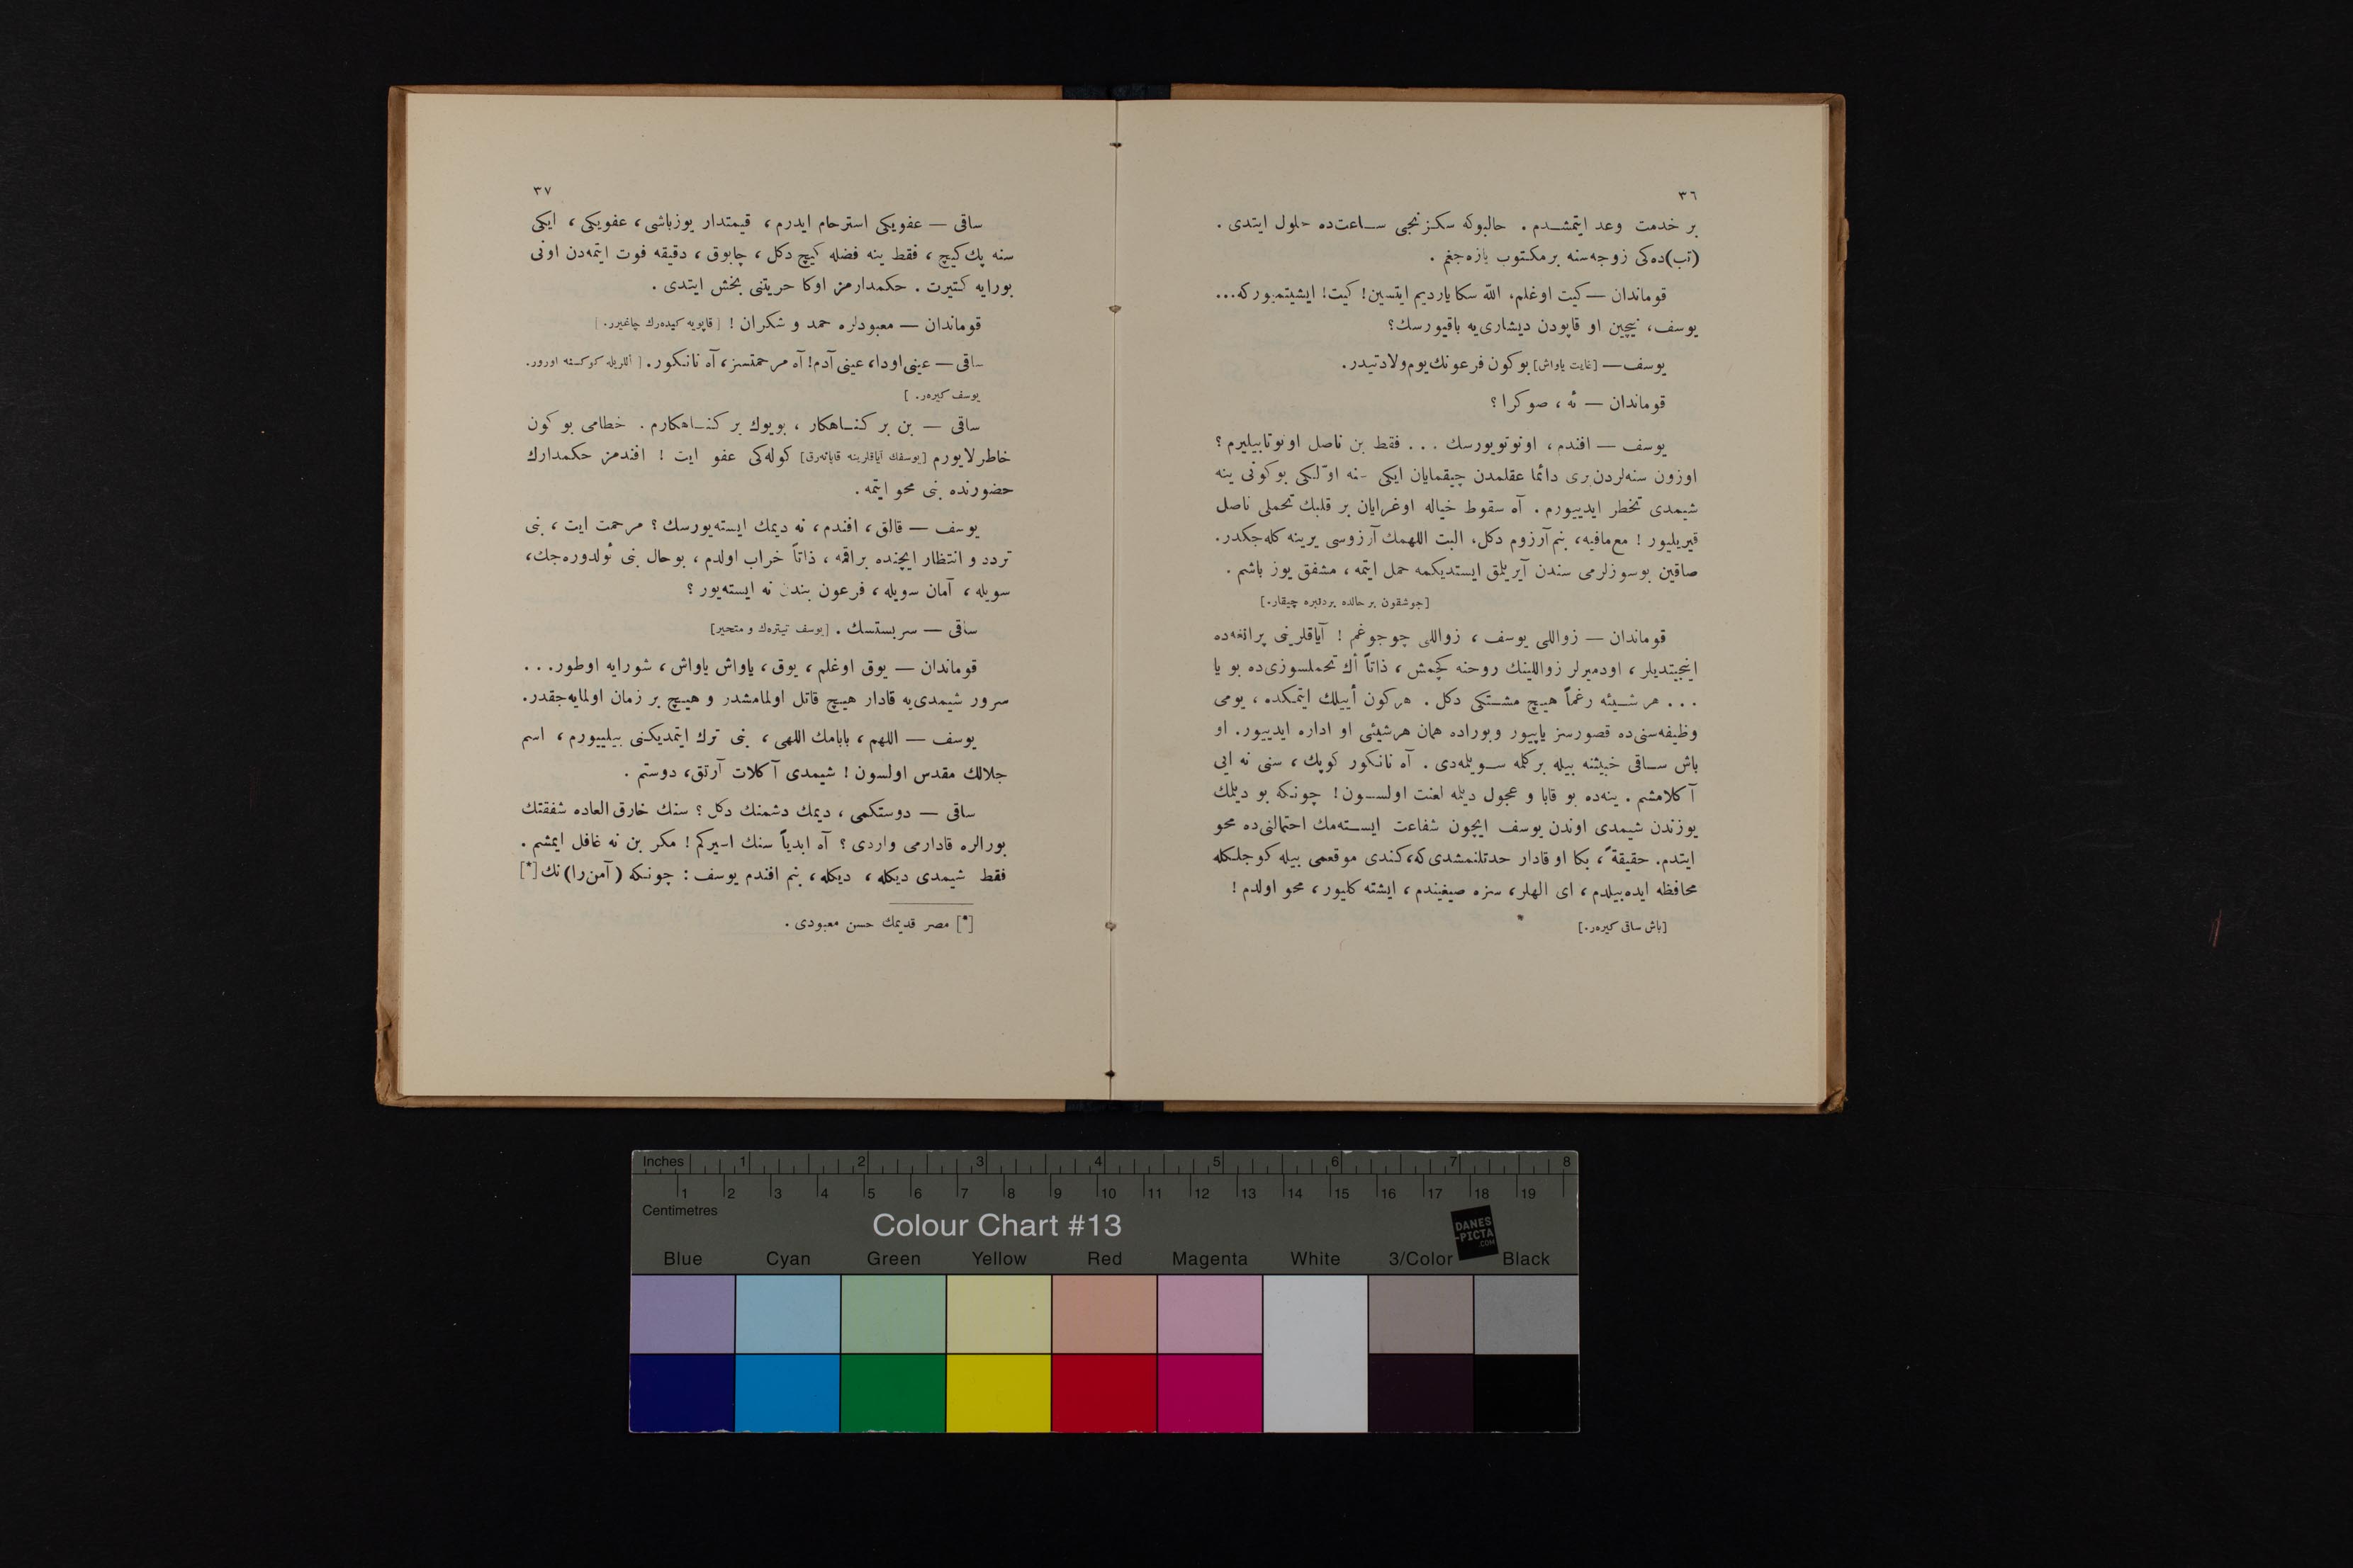 ٣٦
بر خدمت وعد ایتمشدم . حالبوکه سکزنجی ساعت‌ده حلول ایتدی .
(تب)ده‌کی زوجه‌سنه بر مکتوب یازه‌جغم .
قوماندان — کیت اوغلم، الله سکا یاردیم ایتسین! کیت! ایشیتمیورکه...
یوسف، نیچین او قاپودن دیشاری‌یه باقیورسك؟
یوسف — [غایت یاواش] بوکون فرعونك یوم ولادتیدر.
قوماندان — ئه ، صوکرا ؟
یوسف — افندم ، اونوتویورسك ... فقط بن ناصل اونوتابیلیرم ؟
اوزون سنه‌لردن‌بری دائما عقلمدن چیقمایان ایکی سنه اوّلکی بوکونی ینه
شیمدی تخطر ایدییورم . آه سقوط خیاله اوغرایان بر قلبك تحملی ناصل
قیریلیور ! مع‌مافیه، بنم آرزوم دکل، البت اللهمك آرزوسی یرینه کله‌جکدر.
صاقین بوسوزلرمی سندن آیریلمق ایستدیکمه حمل ایتمه ، مشفق یوز باشم .
[جوشقون بر حالده بردنبره چیقار.]
قوماندان — زواللی یوسف ، زواللی چوجوغم ! آیاقلرینی پرانغه‌ده
اینجیتدیلر ، اودمیرلر زواللینك روحنه کچمش ، ذاتاً أك تحملسوزی‌ده بو یا
... هر شیئه رغماً هیچ مشتکی دکل . هرکون أییلك ایتمکده ، یومی
وظیفه‌سنی‌ده قصورسز یاپییور وبوراده همان هرشیئی او اداره ایدییور. او
باش ساقی خبیثنه بیله برکلمه سویلمه‌دی . آه نانکور کوپك ، سنی نه ایی
آکلامشم . ینه‌ده بو قابا و عجول دیلمه لعنت اولسون! چونکه بو دیلمك
یوزندن شیمدی اوندن یوسف ایچون شفاعت ایسته‌مك احتمالنی‌ده محو
ایتدم. حقیقةً ، بکا او قادار حدتلنمشدی‌که، کندی موقعمی بیله کوجلکله
محافظه ایده‌بیلدم ، ای الهلر، سزه صیغیندم ، ایشته کلیور ، محو اولدم !
[باش ساقی کیره‌ر.]
٣٧
ساقی — عفویکی استرحام ایدرم ، قیمتدار یوزباشی ، عفویکی ، ایکی
سنه پك کیچ ، فقط ینه فضله کیچ دکل ، چابوق ، دقیقه فوت ایتمه‌دن اونی
بورایه کتیرت . حکمدارمز اوکا حریتنی بخش ایتدی .
قوماندان — معبودلره حمد و شکران ! [قاپویه کیده‌رك چاغیرر.]
ساقی — عینی اودا، عینی آدم! آه مرحمتسز، آه نانکور. [أللریله کوکسنه اورور.
یوسف کیره‌ر. ]
ساقی — بن بر کناهکار ، بویوك بر کناهکارم . خطامی بو کون
خاطرلایورم [یوسفك آیاقلرینه قاپانه‌رق] کوله‌کی عفو ایت ! افندمز حکمدارك
حضورنده بنی محو ایتمه .
یوسف — قالق ، افندم ، نه دیمك ایسته‌یورسك ؟ مرحمت ایت ، بنی
تردد و انتظار ایچنده براقمه ، ذاتاً خراب اولدم ، بوحال بنی ئولدوره‌جك،
سویله ، آمان سویله ، فرعون بندن نه ایسته‌یور ؟
ساقی — سربستسك . [یوسف تیتره‌ك و متحیر]
قوماندان — یوق اوغلم ، یوق ، یاواش یاواش ، شورایه اوطور...
سرور شیمدی‌یه قادار هیچ قاتل اولمامشدر و هیچ بر زمان اولمایه‌جقدر.
یوسف — اللهم ، بابامك اللهی ، بنی ترك ایتمدیکنی بیلییورم ، اسم
جلالك مقدس اولسون ! شیمدی آکلات آرتق، دوستم .
ساقی — دوستکمی ، دیمك دشمنك دکل ؟ سنك خارق‌العاده شفقتك
بورالره قادارمی واردی ؟ آه ابدیاً سنك اسیرکم ! مکر بن نه غافل ایمشم .
فقط شیمدی دیکله ، دیکله ، بنم افندم یوسف : چونکه (آمن‌را)نك [*]
[*] مصر قدیمك حسن معبودی .
Inches 1 2 3 4 5 6 7 8
1 2 3 4 5 6 7 8 9 10 11 12 13 14 15 16 17 18 19
Centimetres
Colour Chart #13
DANES
-PICTA
.COM
Blue Cyan Green Yellow Red Magenta White 3/Color Black